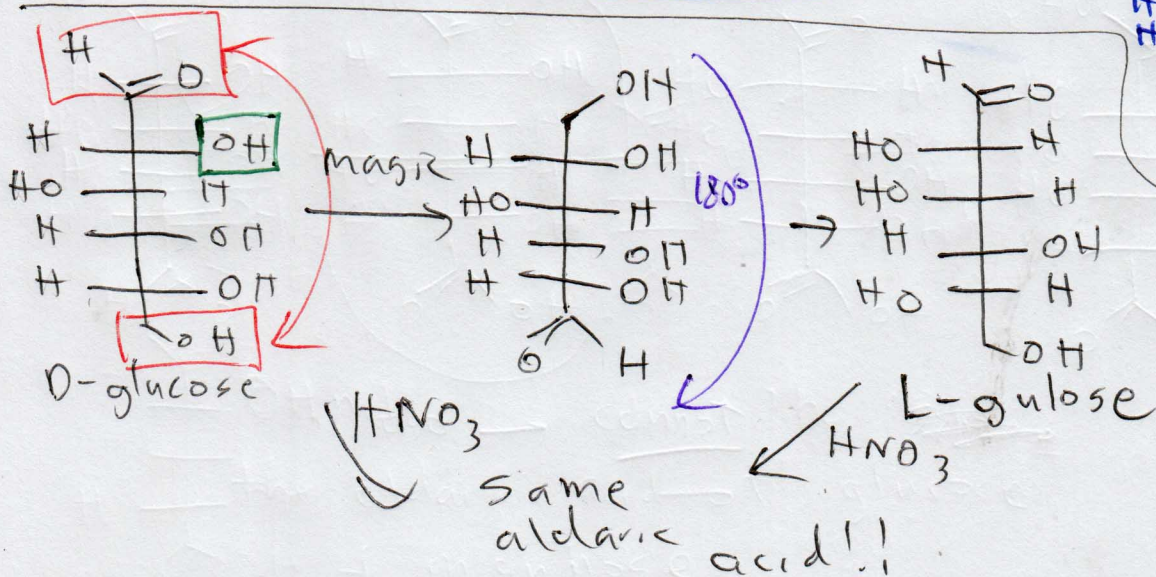 H
O
H OH
HO H
H OH
H OH
OH
D-glucose
magic
OH
H OH
HO H
H OH
H OH
O H
180°
H
O
HO H
HO H
H OH
HO H
OH
L-gulose
HNO3
HNO3
same
aldaric acid!!
H
H